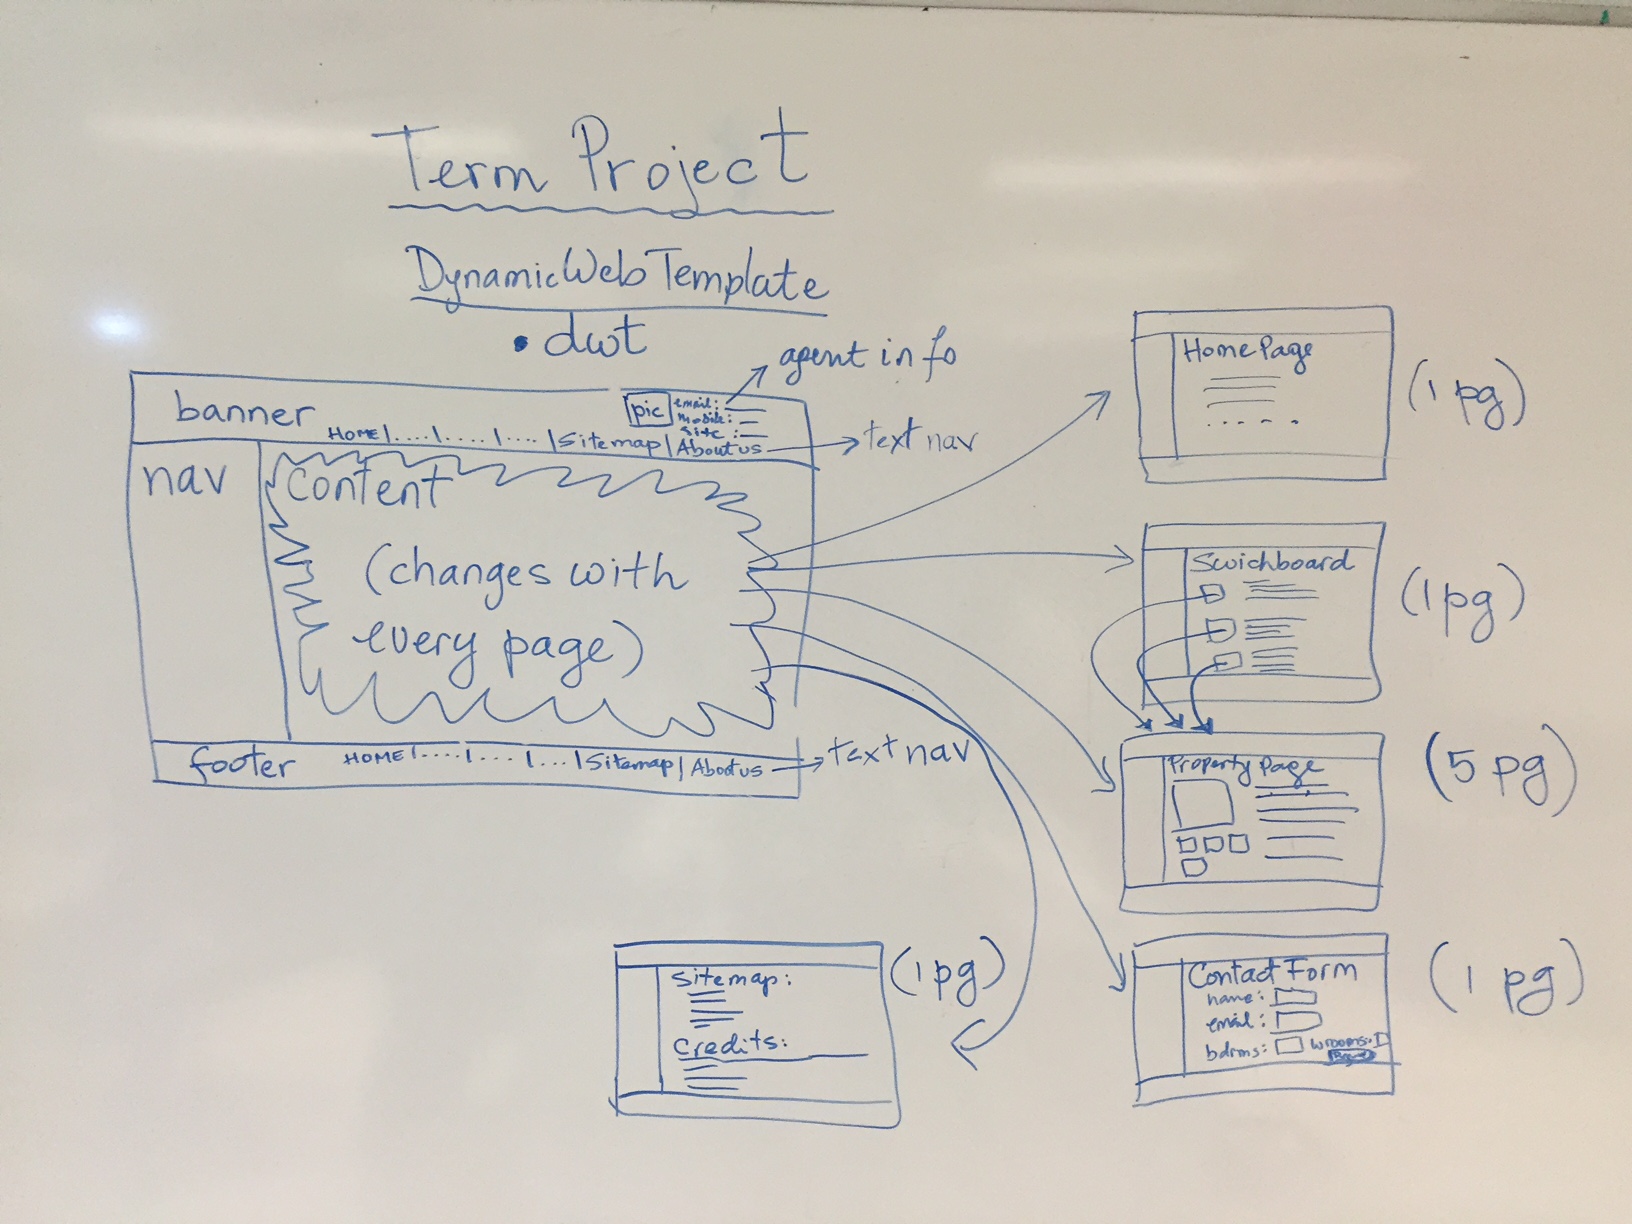 Term Project
DynamicWebTemplate
• dwt
agent info
banner
pic
email:
mobile:
site:
HOME|....|.....|....|Sitemap|About us
text nav
nav
Content
(changes with
every page)
footer
HOME|.....|....|...|Sitemap|About us
text nav
HomePage
(1 pg)
Swichboard
(1pg)
Property Page
(5 pg)
Contact Form
name:
email:
bdrms: wrooms:
(1 pg)
Sitemap:
Credits:
(1 pg)